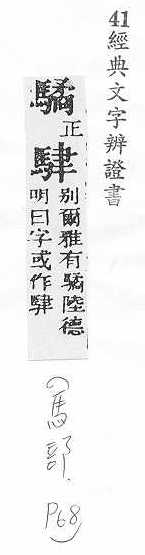 41經典文字辨證書
驈正
䮇
別爾雅有驈陸德
明曰字或作䮇
(馬部.P68)